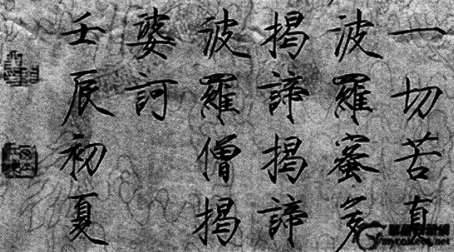 一切苦真
波羅蜜多
揭諦揭諦
波羅僧揭
婆訶
壬辰初夏
mycollect.net